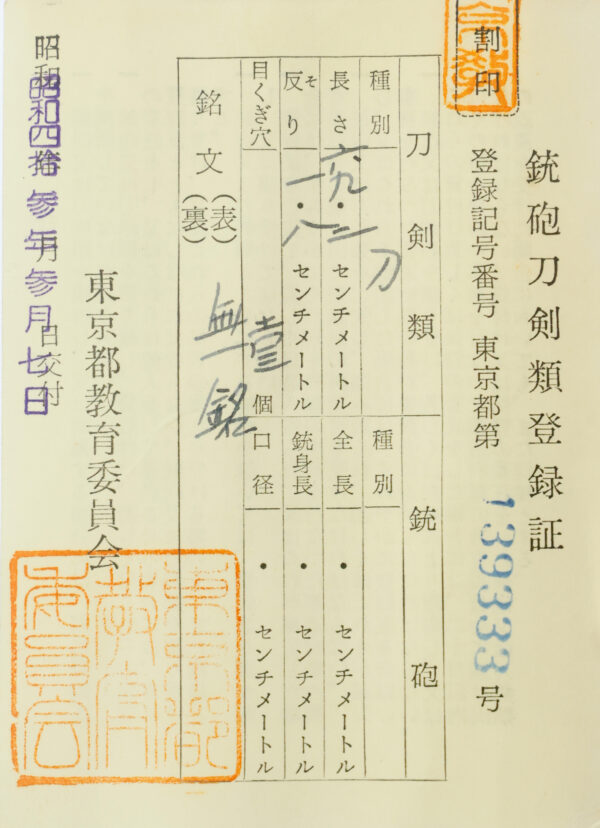 割印
銃砲刀剣類登録証
登録記号番号 東京都第 139333 号
刀剣類
種別 刀
長さ 六九・二 センチメートル
反り そ 一・八 センチメートル
目くぎ穴 壹 個
銘文 (表) (裏) 無銘
銃砲
種別
全長 ・ センチメートル
銃身長 ・ センチメートル
口径 ・ センチメートル
東京都教育委員会
昭和四拾参年参月七日交付
東京都
教育
委員会